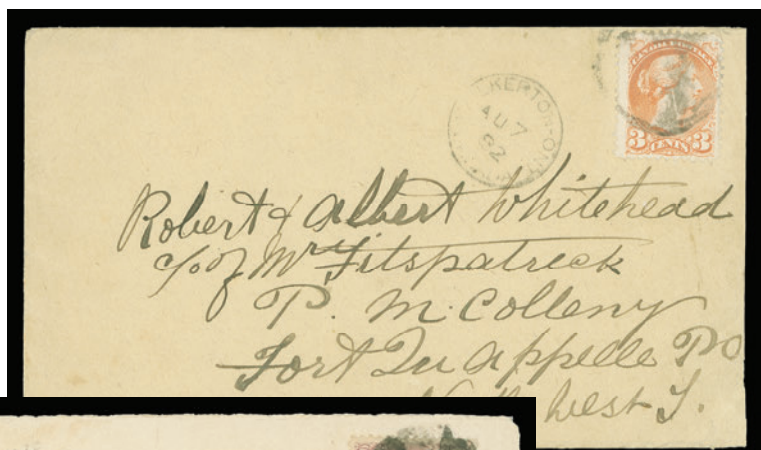 KERTON-ONT
AU 7
82
3 CENTS 3
Robert & Albert Whitehead
c/o of Mr Fitspatrick
P. M. Colleny
Fort Qu appelle P.O
West T.